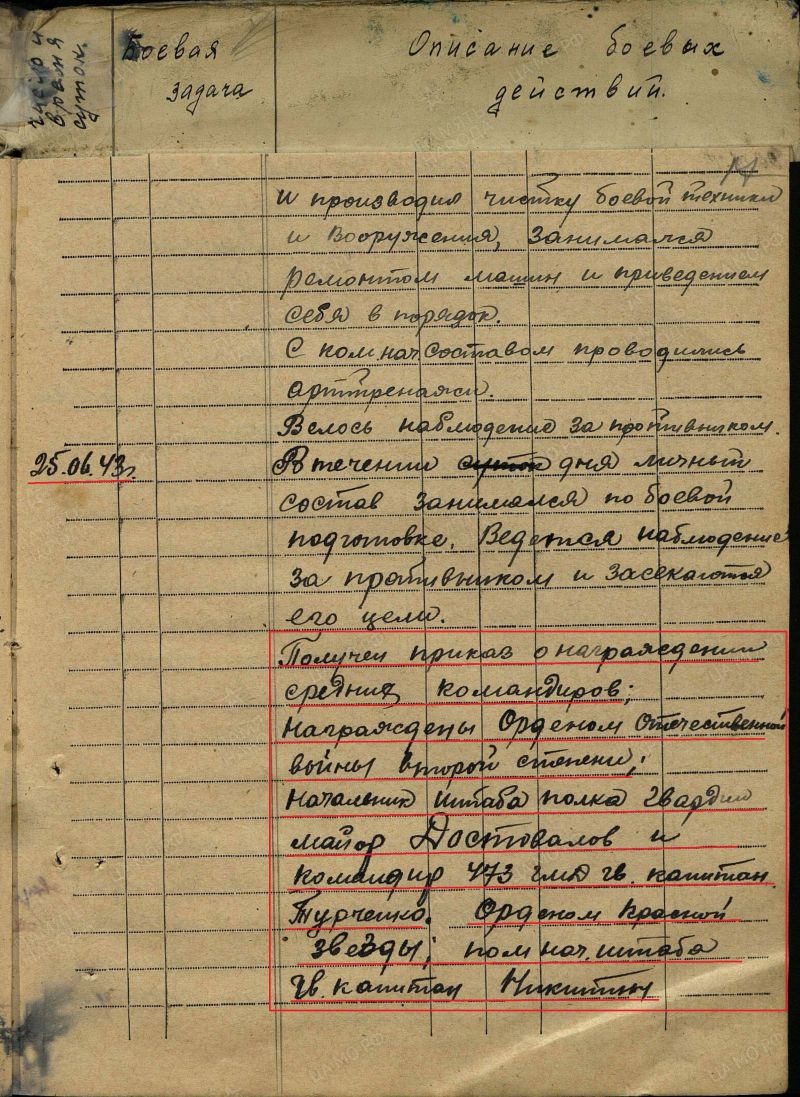 число и
время
суток.
Боевая
задача
Описание боевых
действий.
и производил чистку боевой техники
и вооружения, занимался
ремонтом машин и приведением
себя в порядок.
С комначсоставом проводились
арттренажи.
Велось наблюдение за противником.
25.06.43г.
В течении суток дня личный
состав занимался по боевой
подготовке. Ведется наблюдение
за противником и засекаются
его цели.
Получен приказ о награждении
средних командиров;
Награждены Орденом Отечественной
войны второй степени;
Начальник штаба полка гвардии
майор Достовалов и
командир 473 гмд гв. капитан
Турченко. Орденом Красной
звезды; пом нач. штаба
гв. капитан Никитин